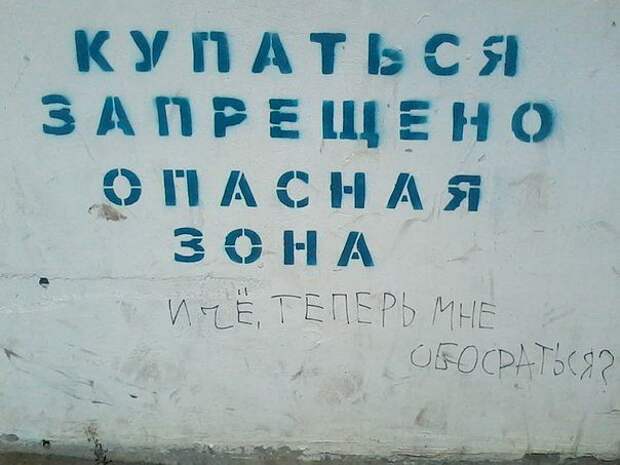 КУПАТЬСЯ
ЗАПРЕЩЕНО
ОПАСНАЯ
ЗОНА
И ЧЁ, ТЕПЕРЬ МНЕ
ОБОСРАТЬСЯ?